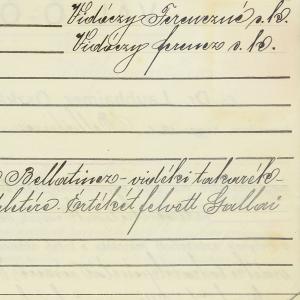 Vidóczy Ferenczné s.k.
Vidóczy ferencz s.k.
Bellatincz-vidéki takarék-
letére. Értékét felvett Gallai